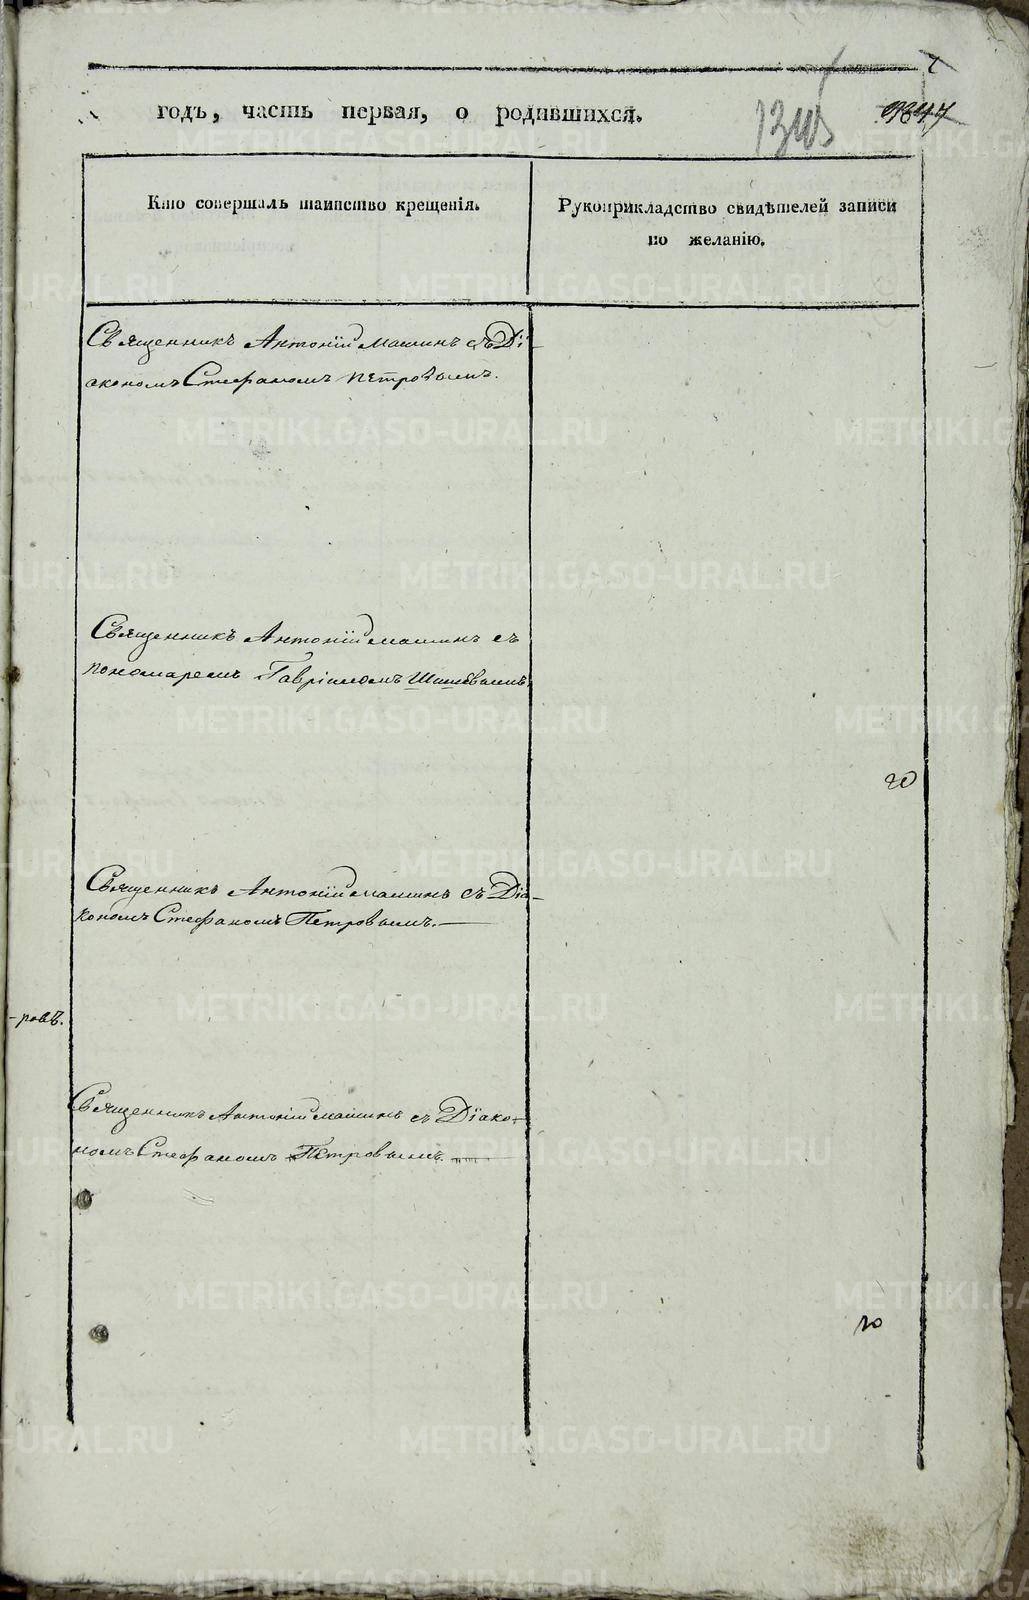 годъ, часть первая, о родившихся.
1847
Кто совершалъ таинство крещенія.
Рукоприкладство свидѣтелей записи
по желанію.
Священникъ Антоній Машинъ съ Ді-
акономъ Стефаномъ Петровымъ.
Священникъ Антоній Машинъ съ
пономаремъ Гавріиломъ
Священникъ Антоній Машинъ съ Діа-
кономъ Стефаномъ Петровымъ.—
-ровъ.
Священникъ Антоній Машинъ съ Діако-
номъ Стефаномъ Петровымъ.
METRIKI.GASO-URAL.RU